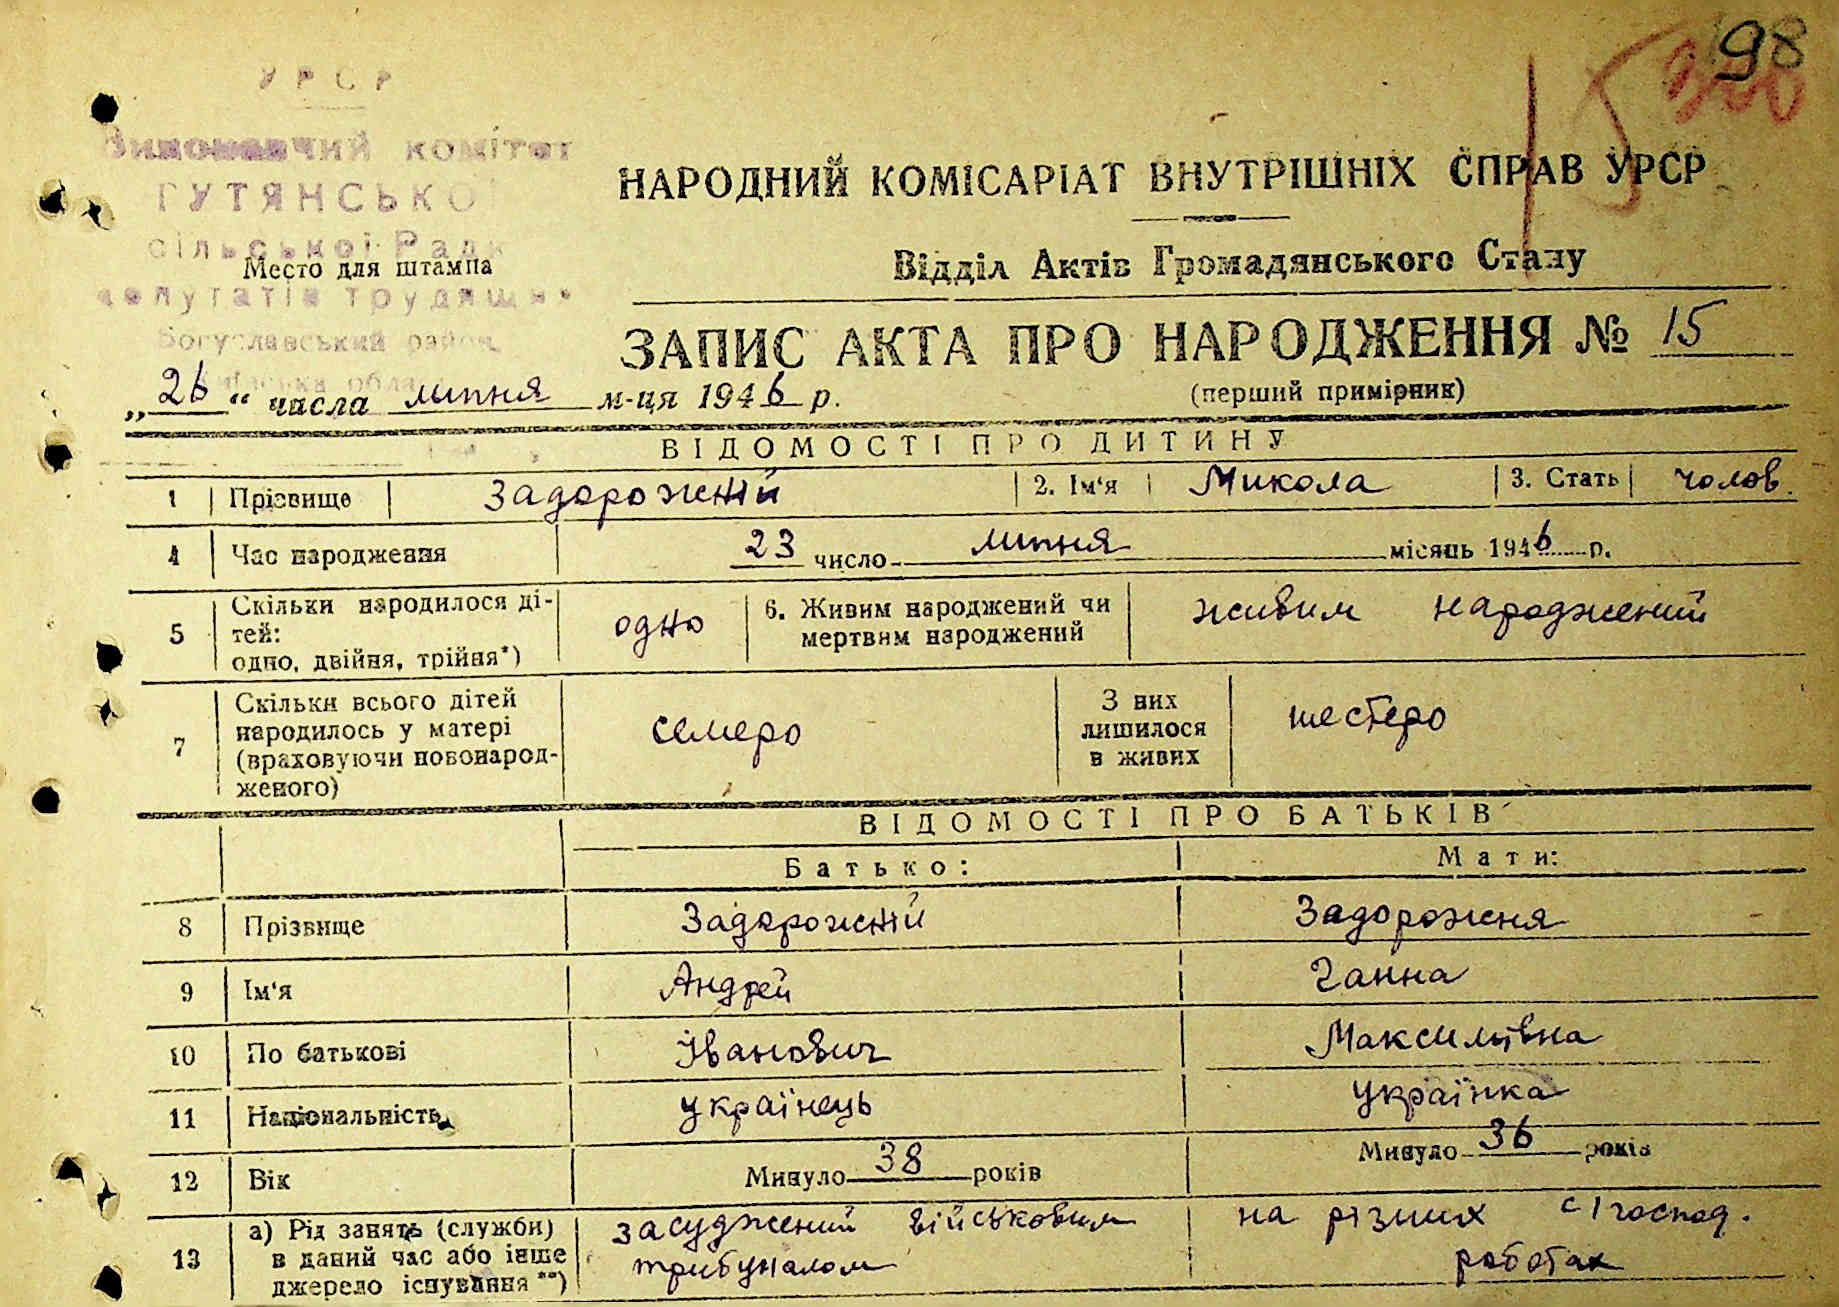 98
УРСР
Виконавчий комітет
ГУТЯНСЬКО
сільської Рад
Место для штампа
депутатів трудящи
Богуславський район
НАРОДНИЙ КОМІСАРІАТ ВНУТРІШНІХ СПРАВ УРСР
Відділ Актів Громадянського Стану
ЗАПИС АКТА ПРО НАРОДЖЕННЯ № 15
(перший примірник)
„26“ числа липня м-ця 1946 р.
ВІДОМОСТІ ПРО ДИТИНУ
1 Прізвище Задорожній 2. Ім'я Микола 3. Стать чолов.
4 Час народження 23 число липня місяць 1946 р.
5 Скільки народилося ді-
тей:
одно, двійня, трійня*) одно 6. Живим народжений чи
мертвим народжений живим народжений
7 Скільки всього дітей
народилось у матері
(враховуючи новонарод-
женого) семеро З них
лишилося
в живих шестеро
ВІДОМОСТІ ПРО БАТЬКІВ
Батько: Мати:
8 Прізвище Задорожній Задорожня
9 Ім'я Андрей Ганна
10 По батькові Іванович Максимівна
11 Національність українець українка
12 Вік Минуло 38 років Минуло 36 років
13 а) Рід занять (служби)
в даний час або інше
джерело існування**) засуджений військовим
трибуналом на різних с/господ.
роботах